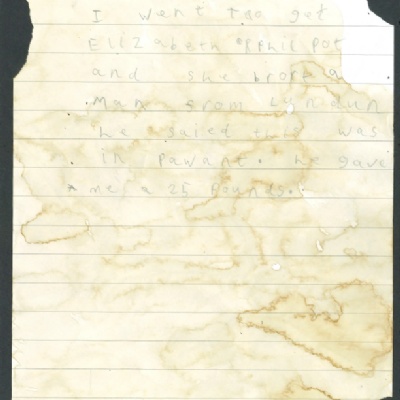 I went too get
ElizAbeth Philpot
and she brort a
Man from Lundun
he saied this was
in pawant. he gave
me a 25 Pounds.